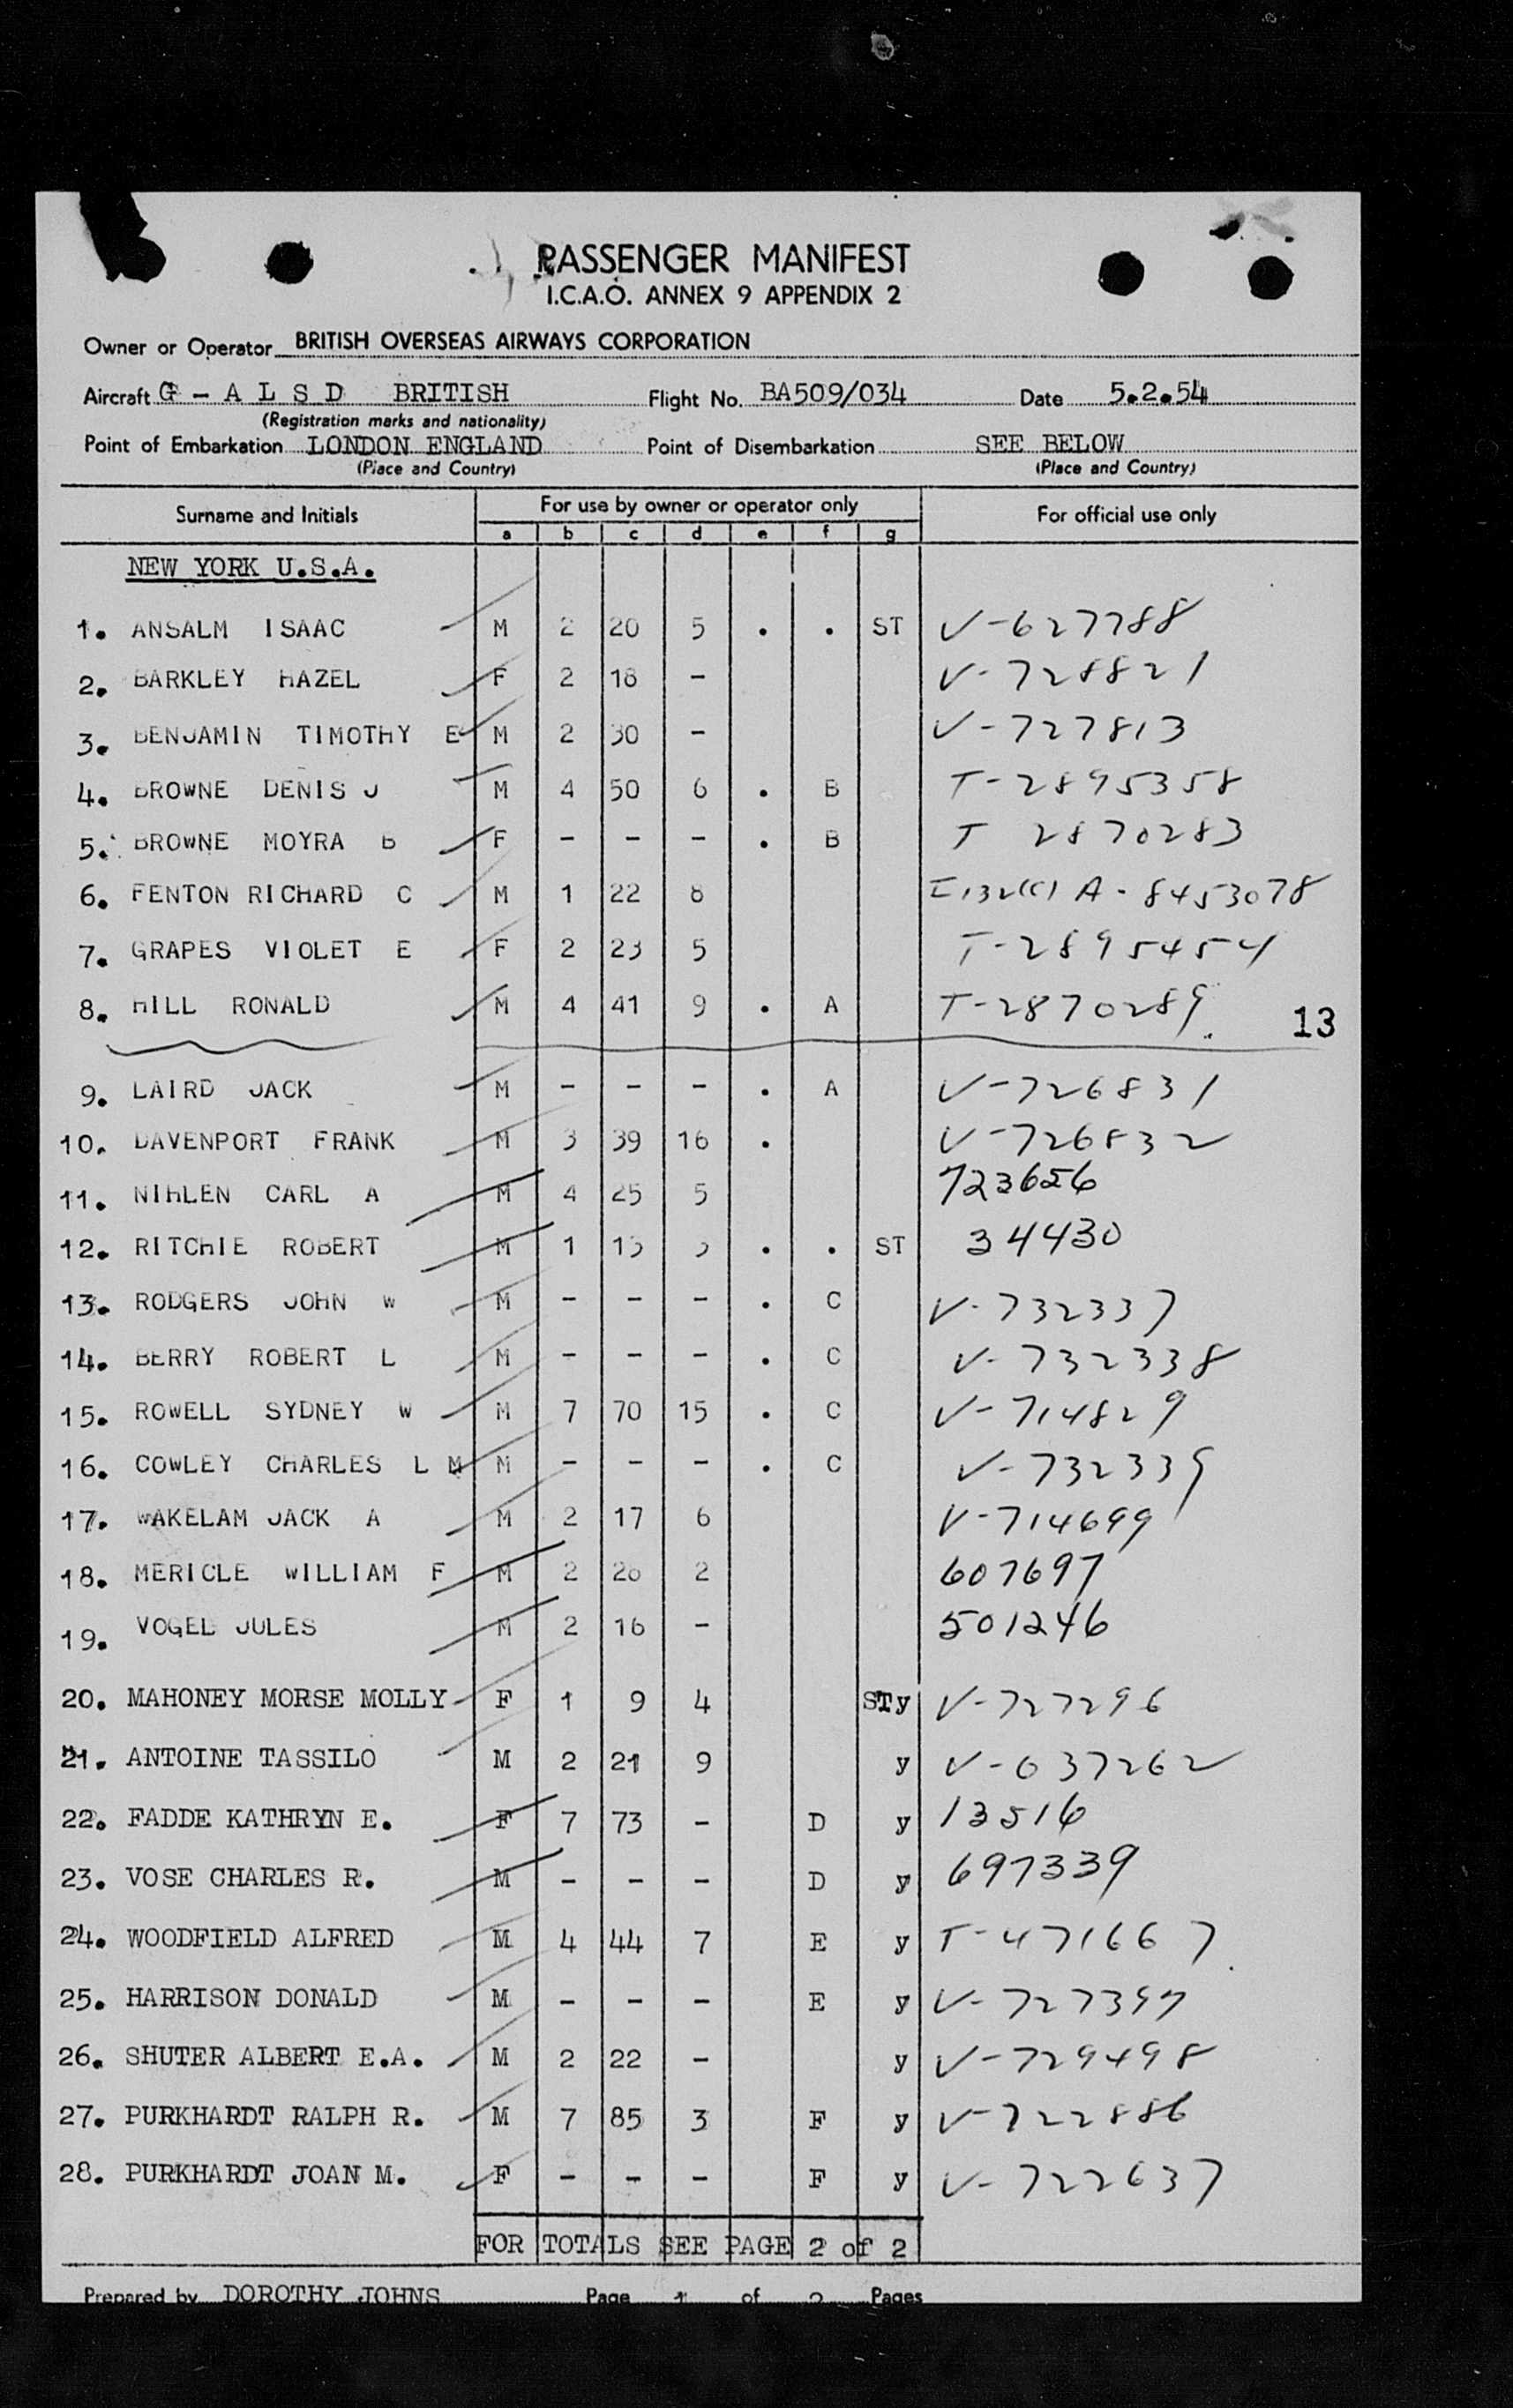 PASSENGER MANIFEST
I.C.A.O. ANNEX 9 APPENDIX 2
Owner or Operator BRITISH OVERSEAS AIRWAYS CORPORATION
Aircraft G - A L S D BRITISH Flight No. BA509/034 Date 5.2.54
(Registration marks and nationality)
Point of Embarkation LONDON ENGLAND Point of Disembarkation SEE BELOW
(Place and Country) (Place and Country)
Surname and Initials For use by owner or operator only For official use only
a b c d e f g
NEW YORK U.S.A.
1. ANSALM ISAAC M 2 20 5 . . ST V-627788
2. BARKLEY HAZEL F 2 18 - V-728821
3. BENJAMIN TIMOTHY E M 2 30 - V-727813
4. BROWNE DENIS J M 4 50 6 . B T-2895358
5. BROWNE MOYRA B F - - - . B T 2870283
6. FENTON RICHARD C M 1 22 8 A-8453078
7. GRAPES VIOLET E F 2 23 5 T-2895454
8. HILL RONALD M 4 41 9 . A T-2870289
13
9. LAIRD JACK M - - - . A V-726831
10. DAVENPORT FRANK M 3 39 16 . V-726832
11. NIHLEN CARL A M 4 25 5 723656
12. RITCHIE ROBERT M 1 13 . . ST 34430
13. RODGERS JOHN W M - - - . C V-732337
14. BERRY ROBERT L M - - - . C V-732338
15. ROWELL SYDNEY W M 7 70 15 . C V-714829
16. COWLEY CHARLES L M M - - - . C V-732339
17. WAKELAM JACK A M 2 17 6 V-714699
18. MERICLE WILLIAM F M 2 2 607697
19. VOGEL JULES M 2 16 - 501246
20. MAHONEY MORSE MOLLY F 1 9 4 STy V-727296
21. ANTOINE TASSILO M 2 21 9 y V-637262
22. FADDE KATHRYN E. F 7 73 - D y 13516
23. VOSE CHARLES R. M - - - D y 697339
24. WOODFIELD ALFRED M 4 44 7 E y T-471667
25. HARRISON DONALD M - - - E y V-727397
26. SHUTER ALBERT E.A. M 2 22 - y V-729498
27. PURKHARDT RALPH R. M 7 85 3 F y V-722886
28. PURKHARDT JOAN M. F - - - F y V-722637
FOR TOTALS SEE PAGE 2 of 2
Prepared by DOROTHY JOHNS Page 1 of 2 Pages